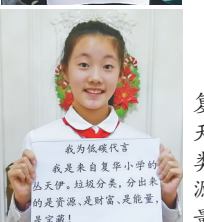 我为低碳代言
我是来自复华小学的
丛天伊。垃圾分类，分出来
的是资源、是财富、是能量，
是宝藏！
复
天
类
源